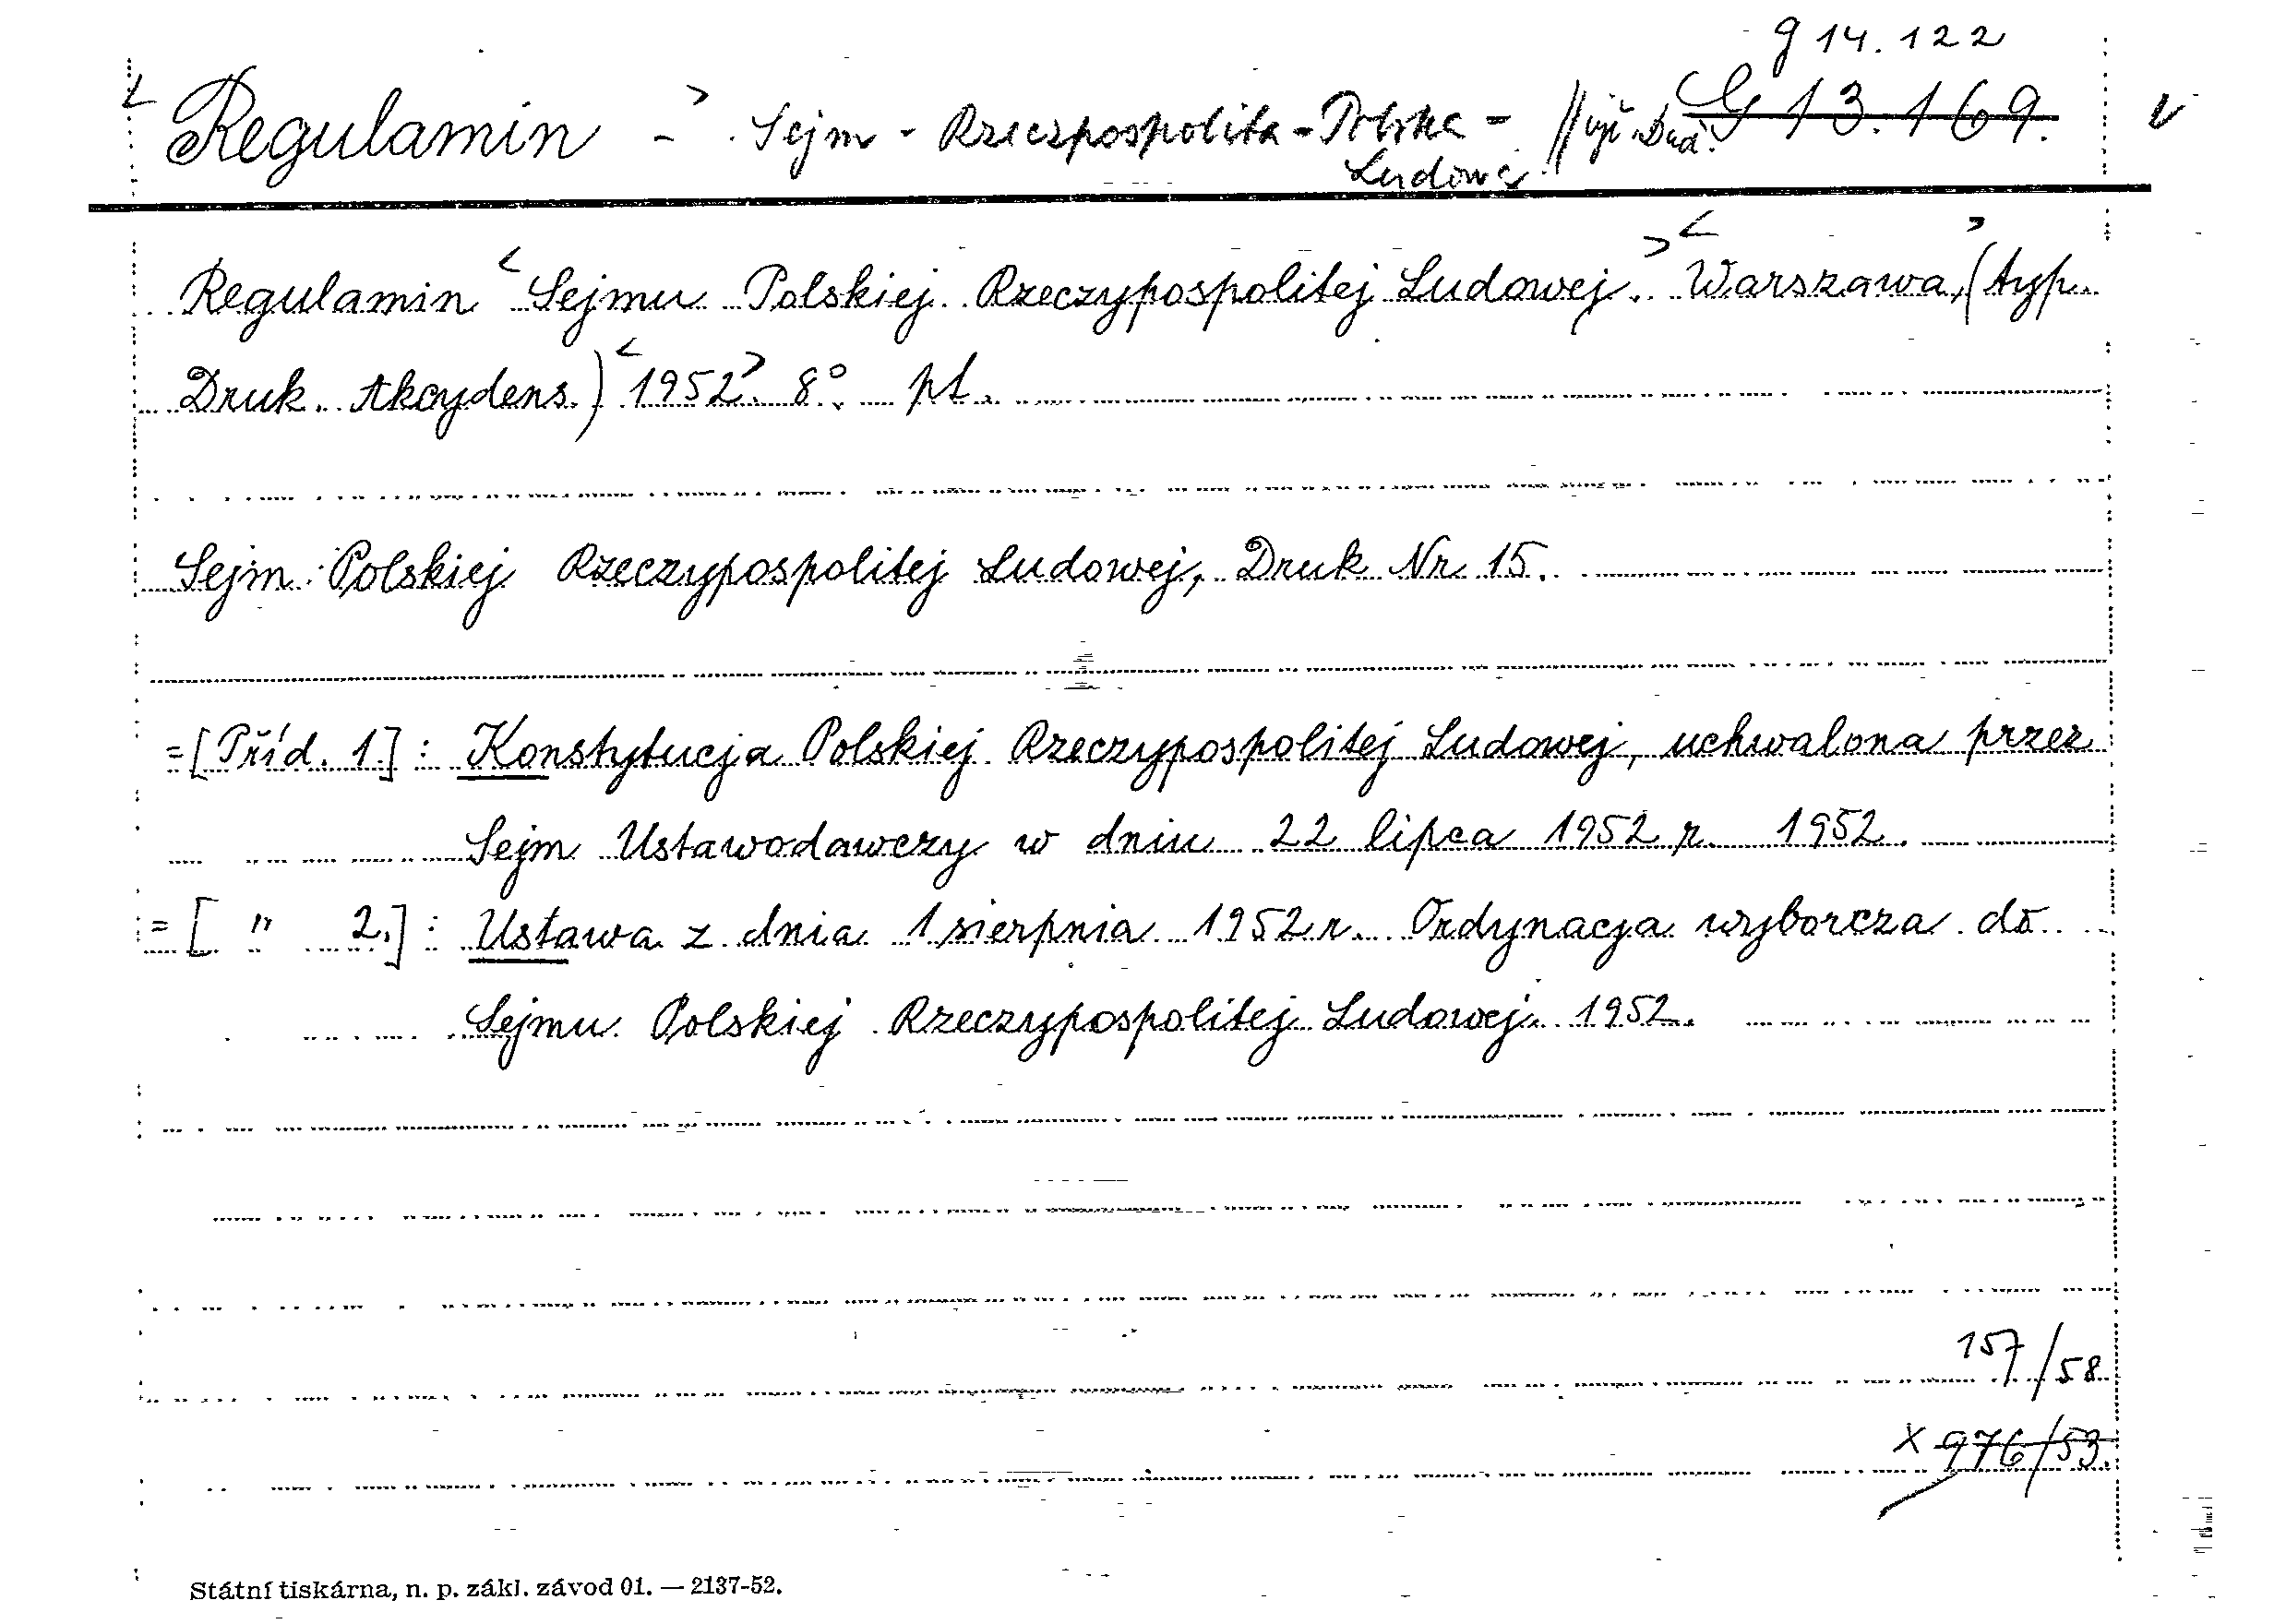 g 14.122
Regulamin - Sejm - Rzeczpospolita - Polska - G 13.169.
Ludowa
Regulamin Sejmu Polskiej Rzeczypospolitej Ludowej. Warszawa, (typ.
Druk. Akcydens.) 1952. 8°. pt.
Sejm Polskiej Rzeczypospolitej Ludowej, Druk Nr 15.
= [Příd. 1.] : Konstytucja Polskiej Rzeczypospolitej Ludowej, uchwalona przez
Sejm Ustawodawczy w dniu 22 lipca 1952 r. 1952.
= [ " 2.] : Ustawa z dnia 1 sierpnia 1952 r. Ordynacja wyborcza do
Sejmu Polskiej Rzeczypospolitej Ludowej. 1952.
157/58
x 976/53.
Státní tiskárna, n. p. zákl. závod 01. — 2137-52.